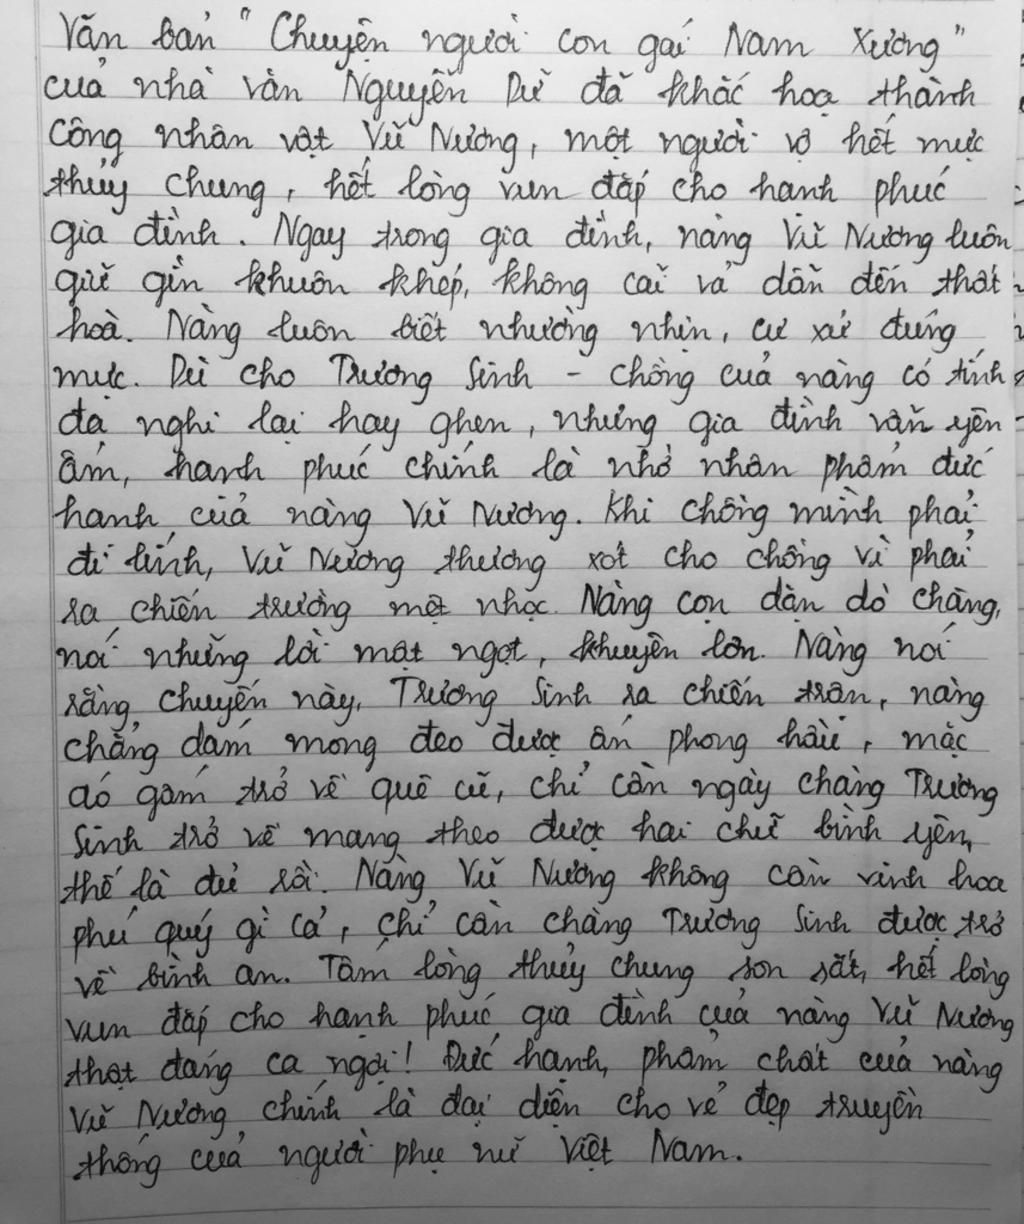 Văn bản "Chuyện người con gái Nam Xương"
của nhà văn Nguyễn Dữ đã khắc hoạ thành
công nhân vật Vũ Nương, một người vợ hết mực
thủy chung, hết lòng vun đắp cho hạnh phúc
gia đình. Ngay trong gia đình, nàng Vũ Nương luôn
giữ gìn khuôn khép, không cãi vả dẫn đến thất
hoà. Nàng luôn biết nhường nhịn, cư xử đúng
mực. Dù cho Trương Sinh - chồng của nàng có tính
đa nghi lại hay ghen, nhưng gia đình vẫn yên
ấm, hạnh phúc chính là nhờ nhân phẩm đức
hạnh của nàng Vũ Nương. Khi chồng mình phải
đi lính, Vũ Nương thương xót cho chồng vì phải
ra chiến trường mệt nhọc. Nàng còn dặn dò chàng,
nói những lời mật ngọt, khuyên lơn. Nàng nói
rằng, chuyến này, Trương Sinh ra chiến trận, nàng
chẳng dám mong đeo được ấn phong hầu, mặc
áo gấm trở về quê cũ, chỉ cần ngày chàng Trương
Sinh trở về mang theo được hai chữ bình yên,
thế là đủ rồi. Nàng Vũ Nương không cần vinh hoa
phú quý gì cả, chỉ cần chàng Trương Sinh được trở
về bình an. Tấm lòng thủy chung son sắt, hết lòng
vun đắp cho hạnh phúc gia đình của nàng Vũ Nương
thật đáng ca ngợi! Đức hạnh, phẩm chất của nàng
Vũ Nương chính là đại diện cho vẻ đẹp truyền
thống của người phụ nữ Việt Nam.